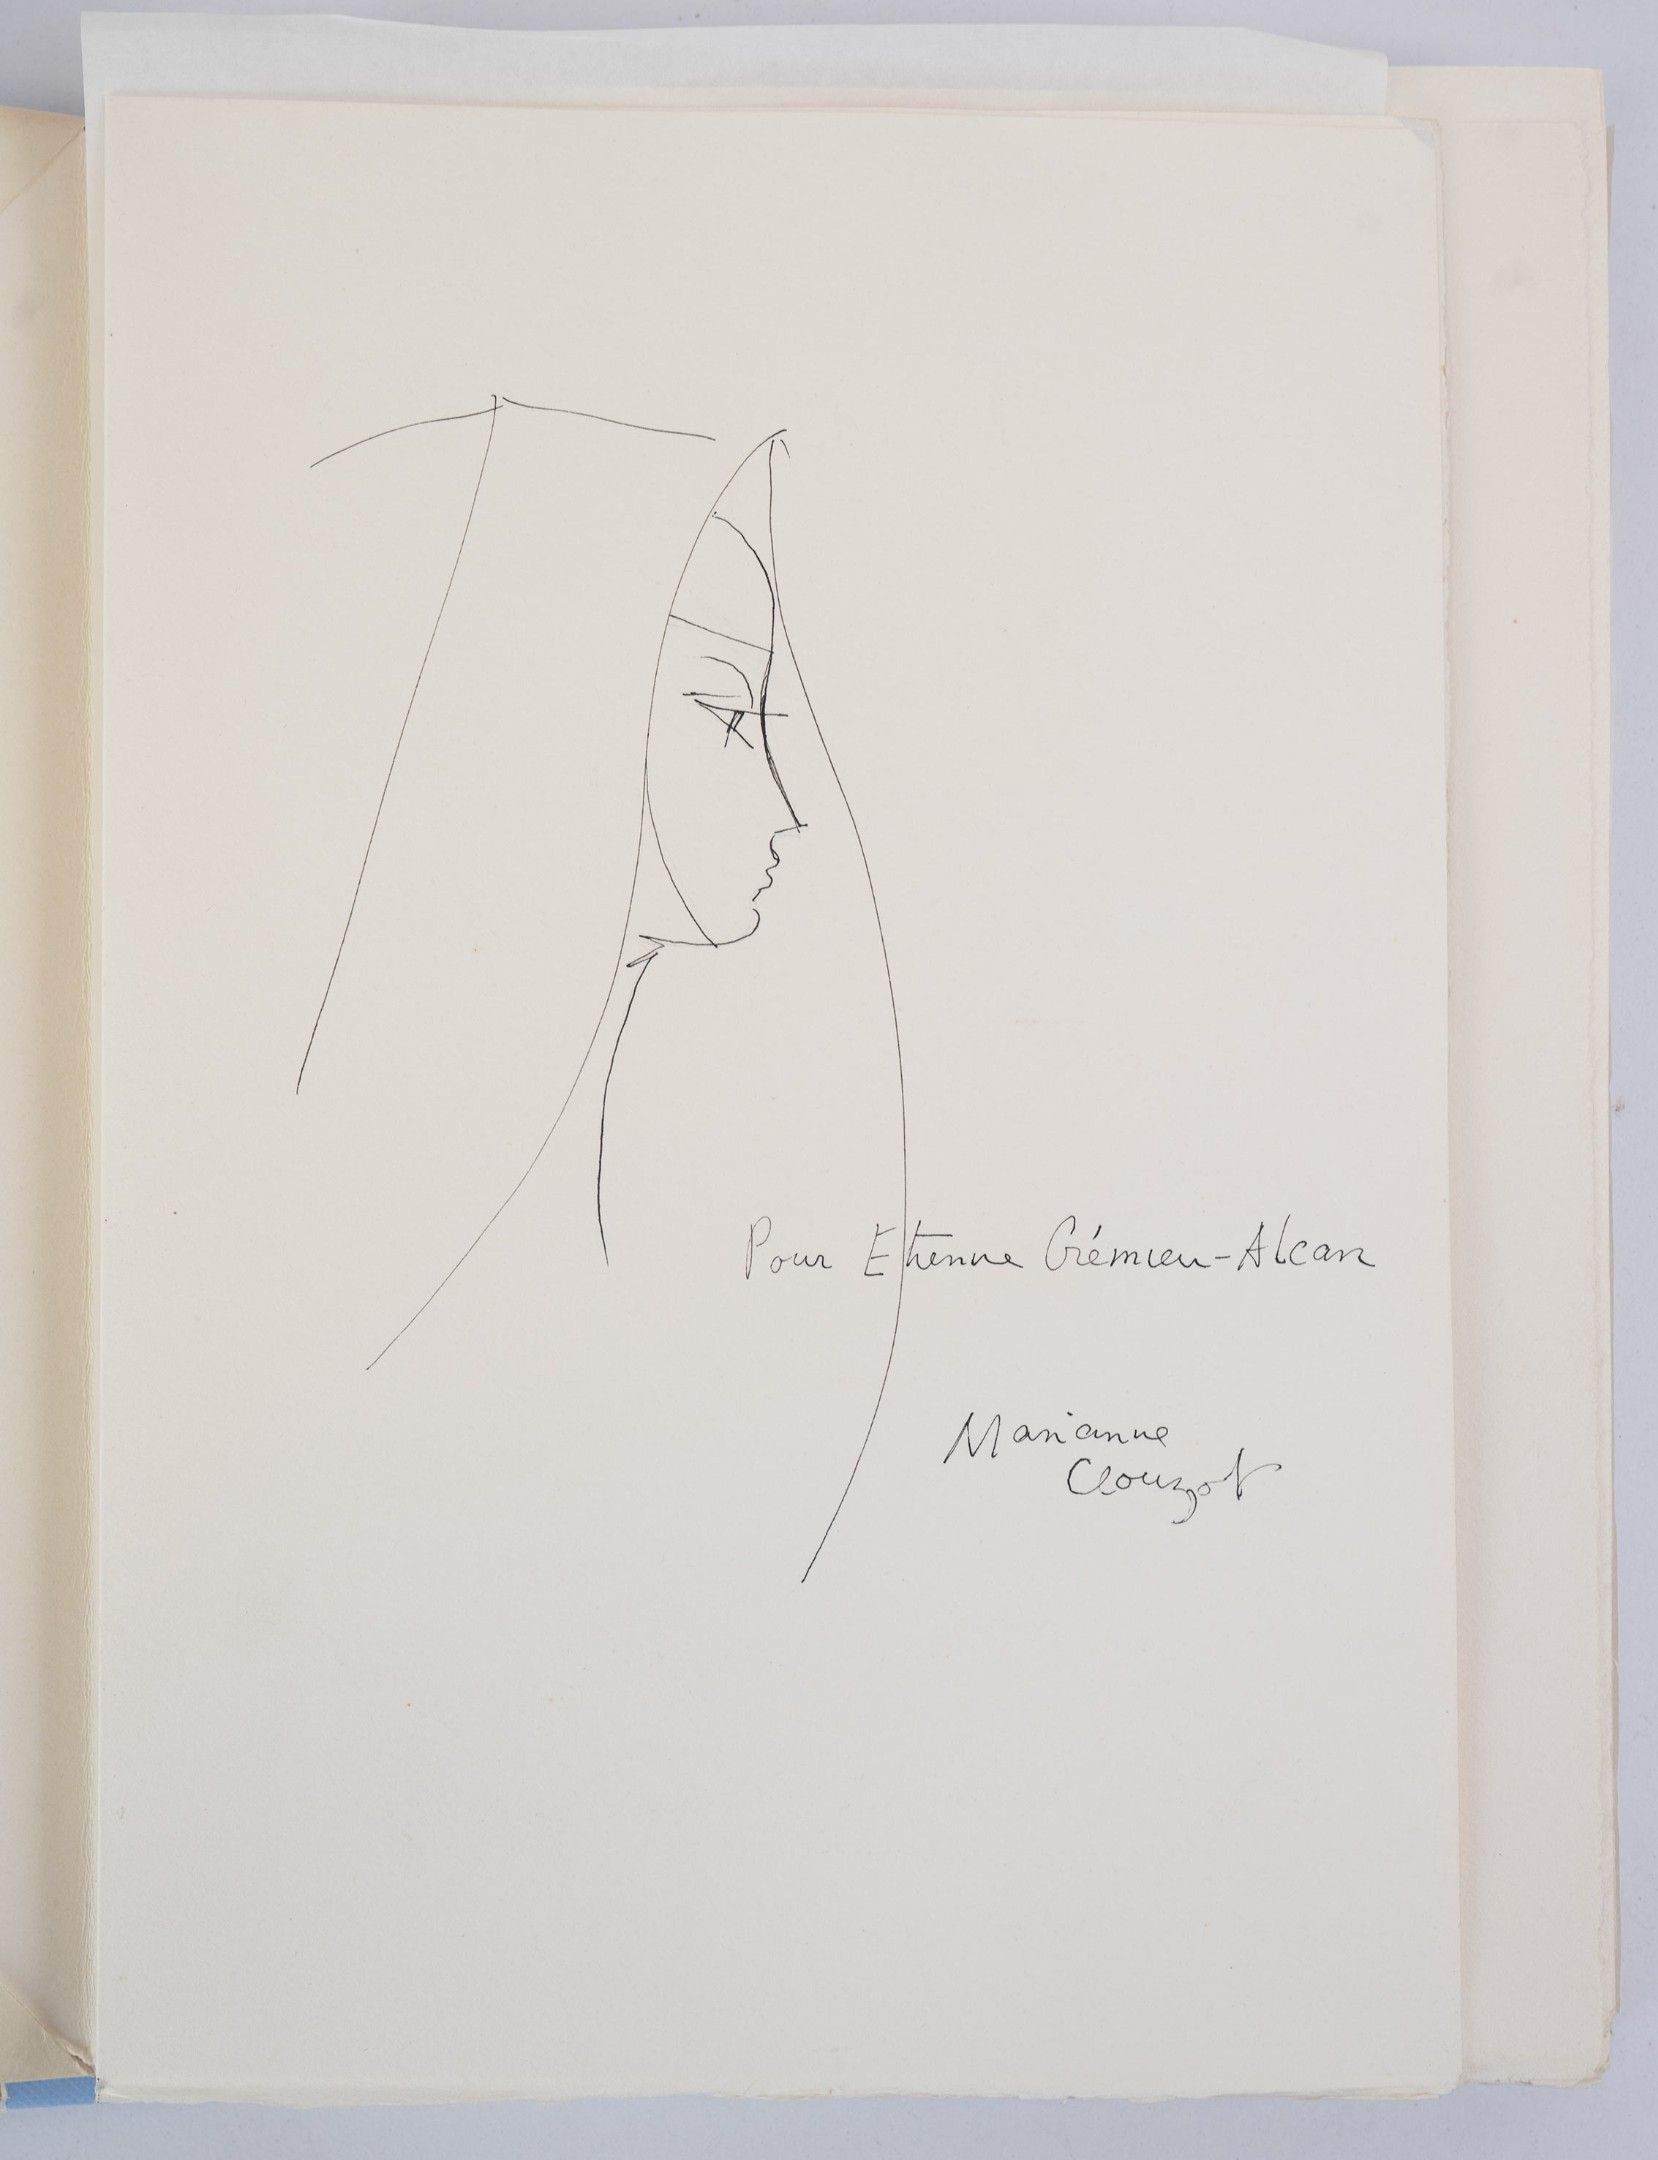 Pour Etienne Crémieu-Alcan
Marianne
Clouzot